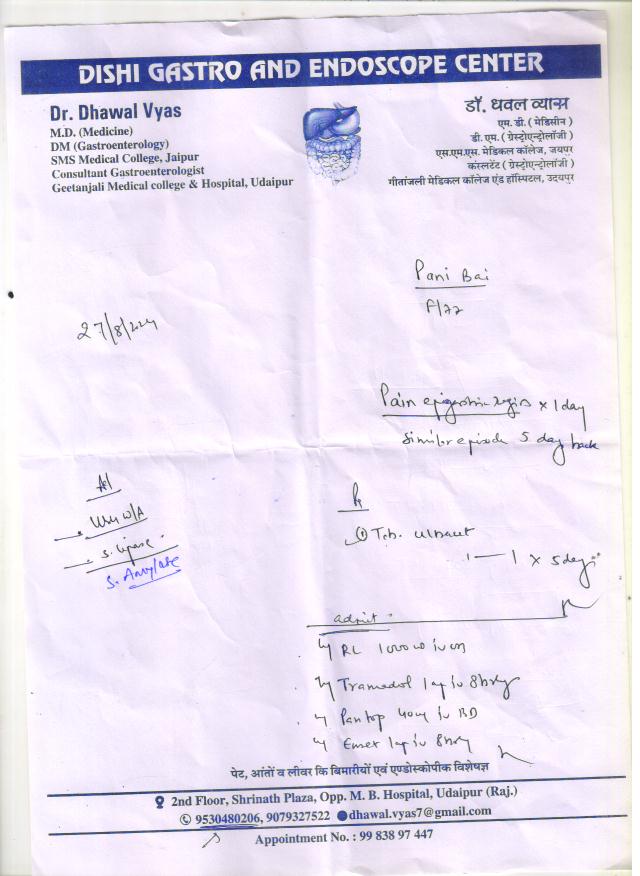 DISHI GASTRO AND ENDOSCOPE CENTER
Dr. Dhawal Vyas
M.D. (Medicine)
DM (Gastroenterology)
SMS Medical College, Jaipur
Consultant Gastroenterologist
Geetanjali Medical college & Hospital, Udaipur
डॉ. धवल व्यास
एम. डी. ( मेडिसीन )
डी. एम. ( ग्रेस्ट्रोएन्ट्रोलॉजी )
एस.एम.एस. मेडिकल कॉलेज, जयपुर
कंसलटेंट ( ग्रेस्ट्रोएन्ट्रोलॉजी )
गीतांजली मेडिकल कॉलेज एंड हॉस्पिटल, उदयपुर
Pani Bai
27/8/2024
Pain epigastric region x 1 day
Similar episode 5 day back
USG W/A
S. lipase
S. Amylase
① Tab.
1 x 5 day
admit
RL 1000 iv
Tramadol 1 amp iv 8 hrly
Pantop 40 mg iv BD
Emset 1 amp iv 8 hrly
पेट, आंतों व लीवर कि बिमारीयों एवं एण्डोस्कोपीक विशेषज्ञ
2nd Floor, Shrinath Plaza, Opp. M. B. Hospital, Udaipur (Raj.)
9530480206, 9079327522 dhawal.vyas7@gmail.com
Appointment No. : 99 838 97 447